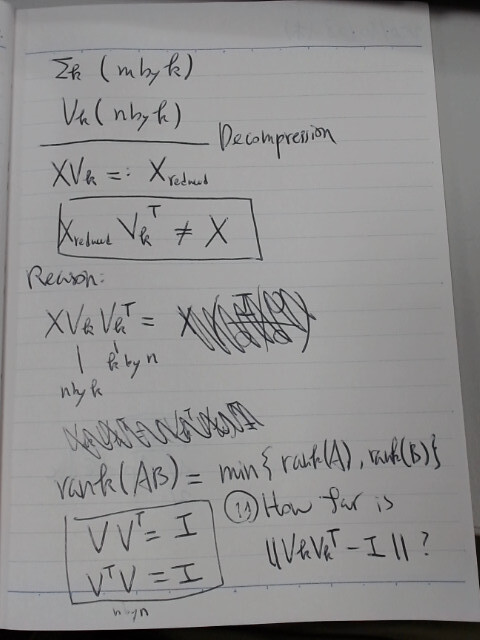 Σk (m by k)
Vk (n by k)
Decompression
XVk =: Xreduced
Xreduced VkT ≠ X
Reason:
XVk VkT = X
k by n
n by k
rank(AB) = min{rank(A), rank(B)}
VVT = I
VTV = I
How far is
||VkVkT - I||?